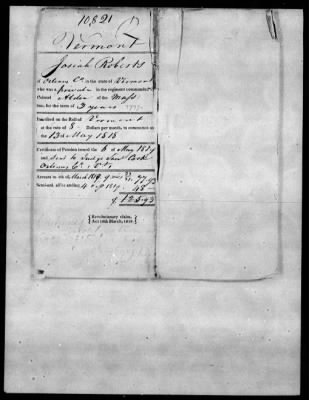 10,821
Vermont
Josiah Roberts
of Orleans Co in the state of Vermont
who was a private in the regiment commanded by
Colonel Alden of the Mass
line, for the term of 3 years 1777.
Inscribed on the Roll of Vermont
at the rate of 8 Dollars per month, to commence on
the 13th May 1818
Certificate of Pension issued the 6 of May 1819
and sent to Judge Saml
Orleans Co
Arrears to 4th of March 1819
Semi-anl. all'ce ending 4 Sep 1819. 48
$125.93
Revolutionary claim,
Act 18th March, 1818.